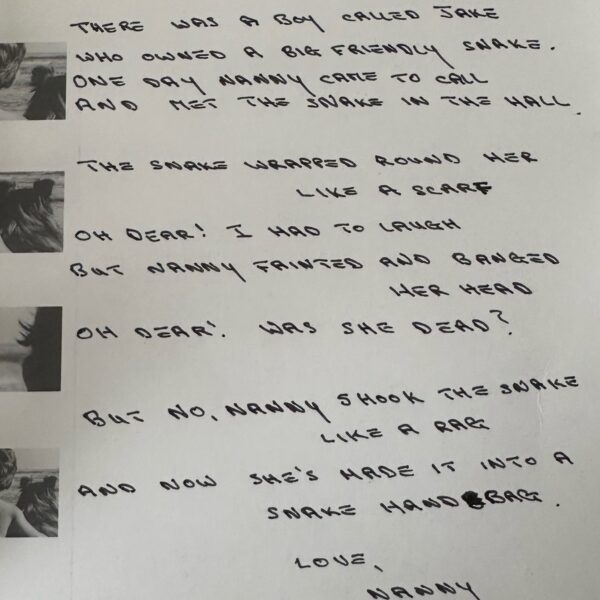 THERE WAS A BOY CALLED JAKE
WHO OWNED A BIG FRIENDLY SNAKE.
ONE DAY NANNY CAME TO CALL
AND MET THE SNAKE IN THE HALL.
THE SNAKE WRAPPED ROUND HER
LIKE A SCARF
OH DEAR! I HAD TO LAUGH
BUT NANNY FAINTED AND BANGED
HER HEAD
OH DEAR! WAS SHE DEAD?
BUT NO, NANNY SHOOK THE SNAKE
LIKE A RAG
AND NOW SHE'S MADE IT INTO A
SNAKE HANDBAG.
LOVE,
NANNY